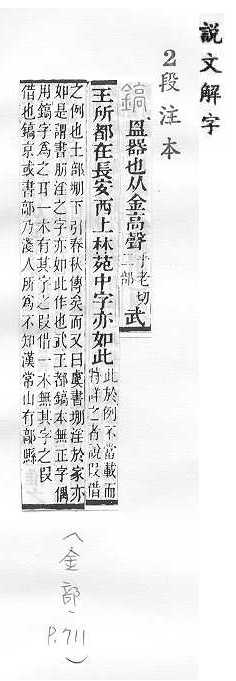 說文解字
2段注本
鎬 𥁕器也从金高聲乎老切二部武
王所都在長安西上林苑中字亦如此此於例不當載而特詳之者說叚借
之例也土部堋下引春秋傳矣而又曰虞書堋淫於家亦
如是謂書朋淫之字亦如此作也武王都鎬本無正字偶
用鎬字爲之耳一本有其字之叚借一本無其字之叚
借也鎬京或書鄗乃淺人所爲不知漢常山有鄗縣
(金部,
P.711)